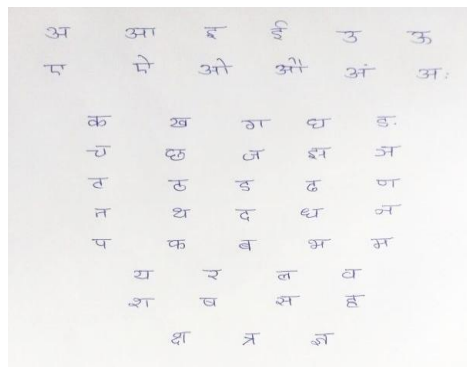 अ आ इ ई उ ऊ
ए ऐ ओ औ अं अः
क ख ग घ ङ
च छ ज झ ञ
ट ठ ड ढ ण
त थ द ध न
प फ ब भ म
य र ल व
श ष स ह
क्ष त्र ज्ञ